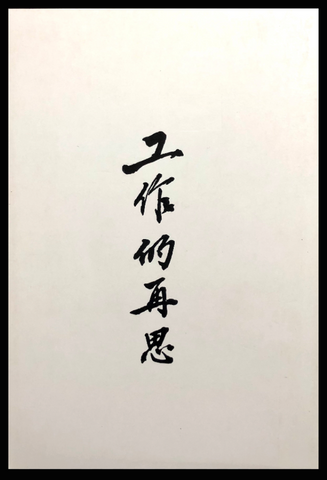 工作的再思